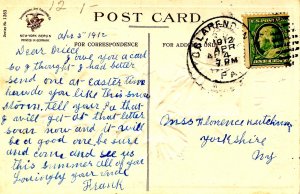 12 1
POST CARD.
Series No. 1303
NEW YORK
FOR CORRESPONDENCE
FOR ADDRESS ONLY
Apr 5" 1912
Dear
I owe you a card
So I thought I had better
send one at Easter time
how do you like this snow
storm, tell your Pa that
I will get at that letter
soon now and it will
be a good one be sure
and come and see us
this summer all of you
Lovingly your
Frank
CLARENDON
APR
1912
PM
PA.
Miss Florence
Yorkshire
NY